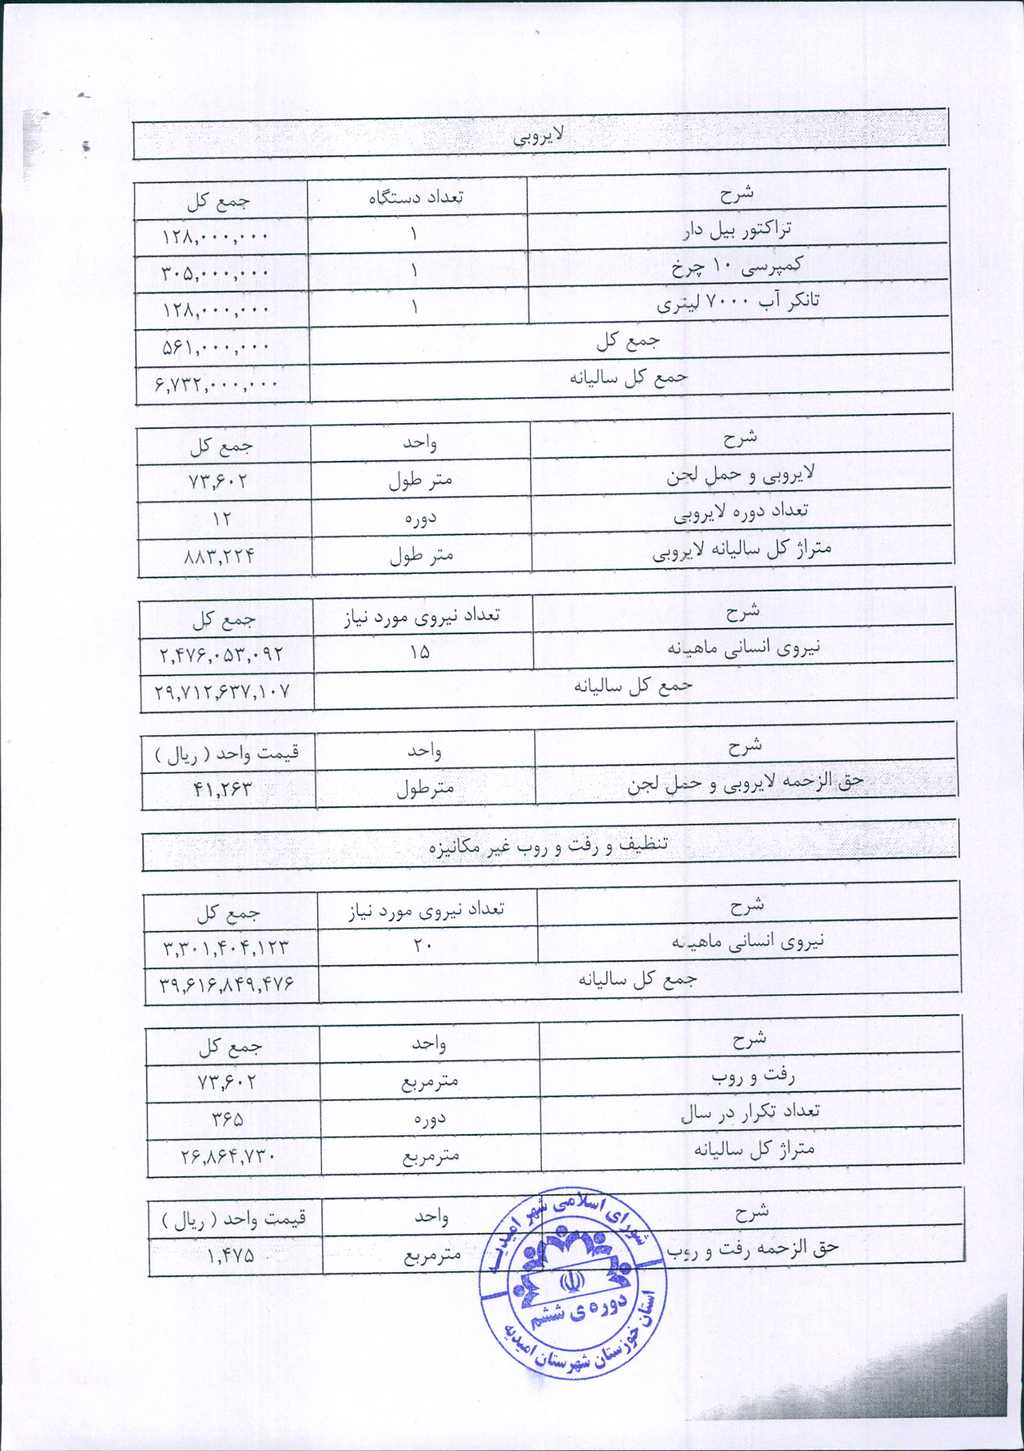 لایروبی
شرح تعداد دستگاه جمع کل
تراکتور بیل دار ۱ ۱۲۸,۰۰۰,۰۰۰
کمپرسی ۱۰ چرخ ۱ ۳۰۵,۰۰۰,۰۰۰
تانکر آب ۷۰۰۰ لیتری ۱ ۱۲۸,۰۰۰,۰۰۰
جمع کل ۵۶۱,۰۰۰,۰۰۰
جمع کل سالیانه ۶,۷۳۲,۰۰۰,۰۰۰
شرح واحد جمع کل
لایروبی و حمل لجن متر طول ۷۳,۶۰۲
تعداد دوره لایروبی دوره ۱۲
متراژ کل سالیانه لایروبی متر طول ۸۸۳,۲۲۴
شرح تعداد نیروی مورد نیاز جمع کل
نیروی انسانی ماهیانه ۱۵ ۲,۴۷۶,۰۵۳,۰۹۲
جمع کل سالیانه ۲۹,۷۱۲,۶۳۷,۱۰۷
شرح واحد قیمت واحد ( ریال )
حق الزحمه لایروبی و حمل لجن مترطول ۴۱,۲۶۳
تنظیف و رفت و روب غیر مکانیزه
شرح تعداد نیروی مورد نیاز جمع کل
نیروی انسانی ماهیانه ۲۰ ۳,۳۰۱,۴۰۴,۱۲۳
جمع کل سالیانه ۳۹,۶۱۶,۸۴۹,۴۷۶
شرح واحد جمع کل
رفت و روب مترمربع ۷۳,۶۰۲
تعداد تکرار در سال دوره ۳۶۵
متراژ کل سالیانه مترمربع ۲۶,۸۶۴,۷۳۰
شرح واحد قیمت واحد ( ریال )
حق الزحمه رفت و روب مترمربع ۱,۴۷۵
شورای اسلامی شهر امیدیه
دوره ی ششم
استان خوزستان شهرستان امیدیه